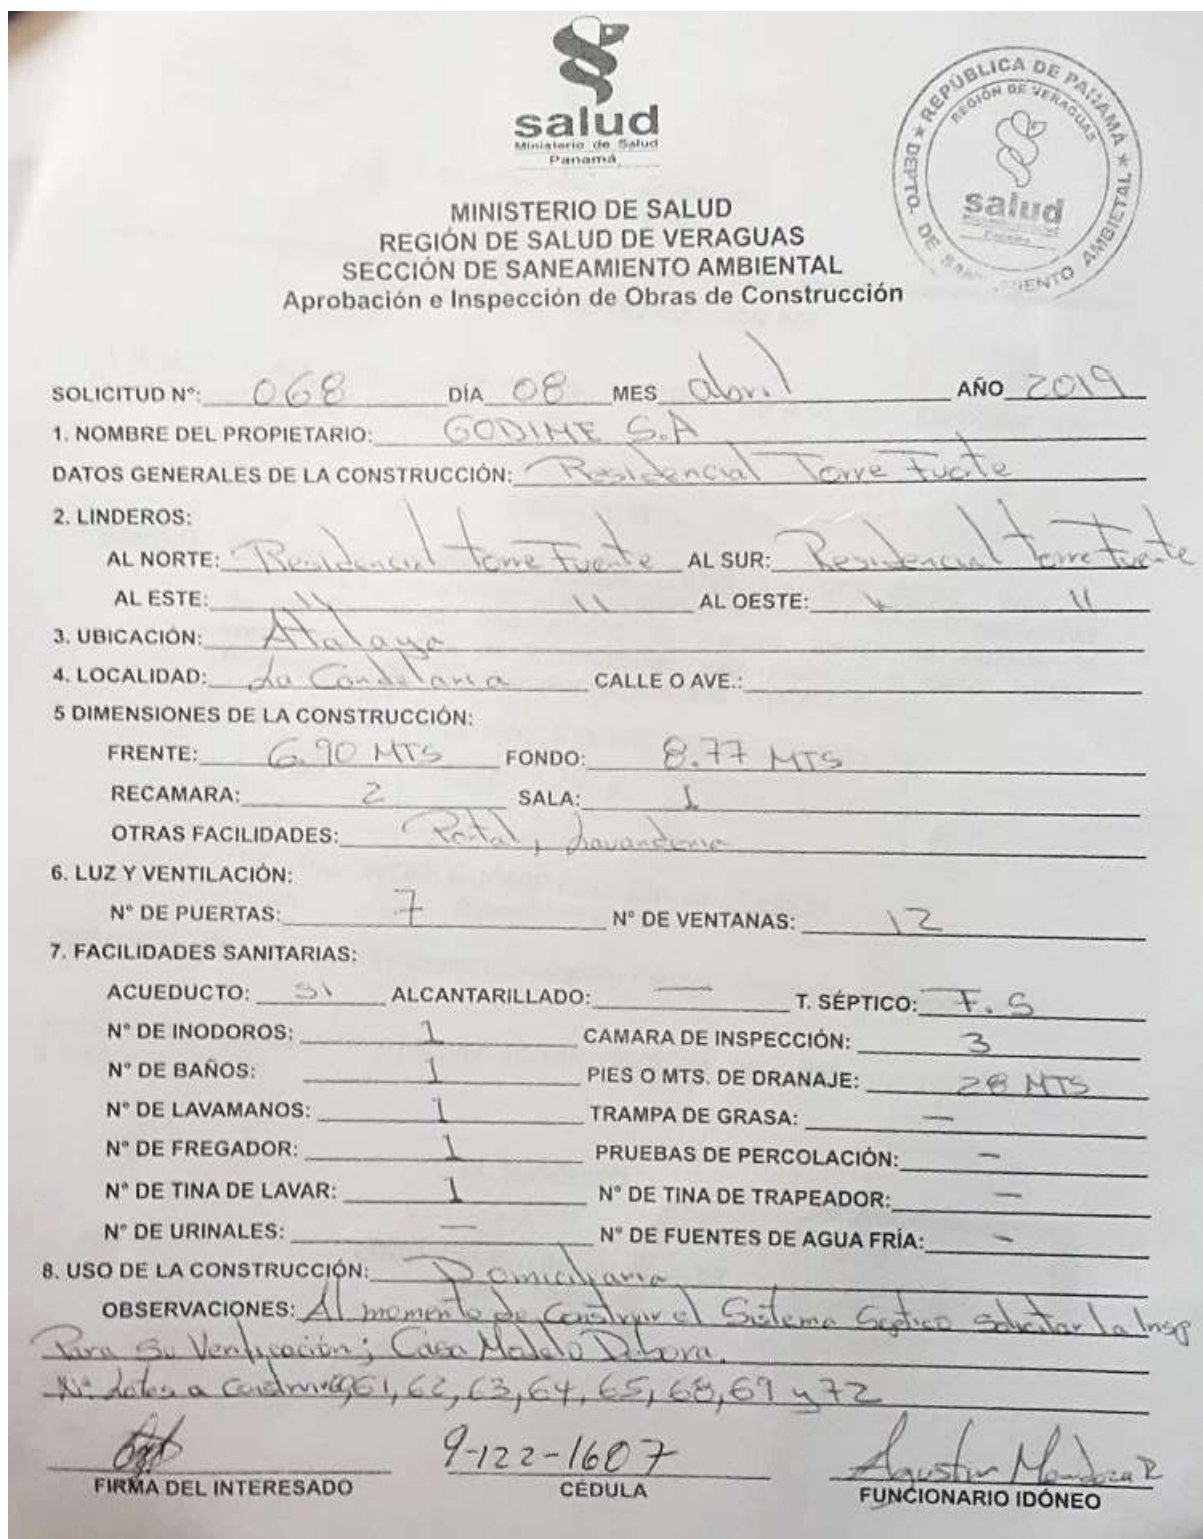 salud
Ministerio de Salud
Panamá
★ REPÚBLICA DE PANAMÁ ★
REGIÓN DE VERAGUAS
salud
DEPTO. DE SANEAMIENTO AMBIETAL
MINISTERIO DE SALUD
REGIÓN DE SALUD DE VERAGUAS
SECCIÓN DE SANEAMIENTO AMBIENTAL
Aprobación e Inspección de Obras de Construcción
SOLICITUD N°: 068 DÍA 08 MES abril AÑO 2019
1. NOMBRE DEL PROPIETARIO: GODIME S.A
DATOS GENERALES DE LA CONSTRUCCIÓN: Residencial Torre Fuerte
2. LINDEROS:
AL NORTE: Residencial torre Fuerte AL SUR: Residencial torre Fuerte
AL ESTE: " " AL OESTE: " "
3. UBICACIÓN: Atalaya
4. LOCALIDAD: La Candelaria CALLE O AVE.:
5 DIMENSIONES DE LA CONSTRUCCIÓN:
FRENTE: 6.90 MTS FONDO: 8.77 MTS
RECAMARA: 2 SALA: 1
OTRAS FACILIDADES: Portal, Lavanderia
6. LUZ Y VENTILACIÓN:
N° DE PUERTAS: 7 N° DE VENTANAS: 12
7. FACILIDADES SANITARIAS:
ACUEDUCTO: SI ALCANTARILLADO: — T. SÉPTICO: T. S
N° DE INODOROS: 1 CAMARA DE INSPECCIÓN: 3
N° DE BAÑOS: 1 PIES O MTS. DE DRANAJE: 28 MTS
N° DE LAVAMANOS: 1 TRAMPA DE GRASA: —
N° DE FREGADOR: 1 PRUEBAS DE PERCOLACIÓN: —
N° DE TINA DE LAVAR: 1 N° DE TINA DE TRAPEADOR: —
N° DE URINALES: — N° DE FUENTES DE AGUA FRÍA: —
8. USO DE LA CONSTRUCCIÓN: Domiciliaria
OBSERVACIONES: Al momento de Construir el Sistema Septico Solicitar la Insp
Para Su Verificación; Casa Modelo Debora.
N° Lotes a Construir 61, 62, 63, 64, 65, 68, 69 y 72
9-122-1607 Agustin Mendoza R
FIRMA DEL INTERESADO CÉDULA FUNCIONARIO IDÓNEO